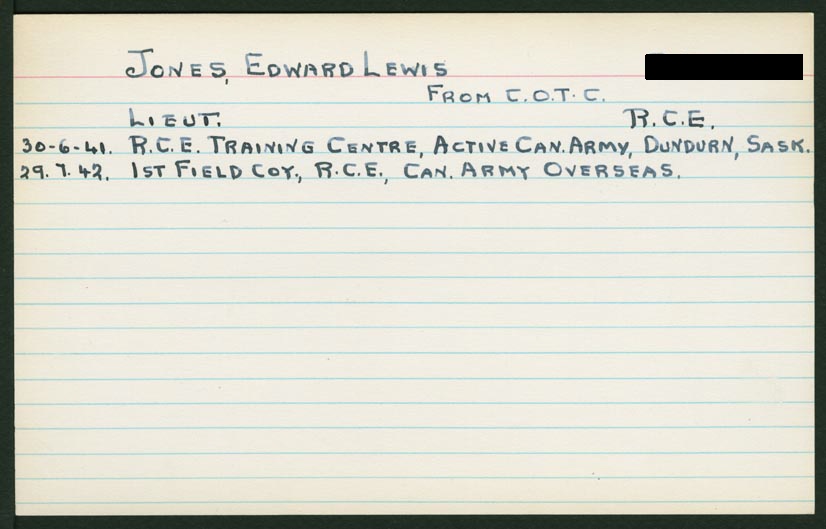 JONES, EDWARD LEWIS
FROM C.O.T.C.
LIEUT. R.C.E.
30-6-41. R.C.E. TRAINING CENTRE, ACTIVE CAN. ARMY, DUNDURN, SASK.
29.7.42. 1ST FIELD COY., R.C.E., CAN. ARMY OVERSEAS.